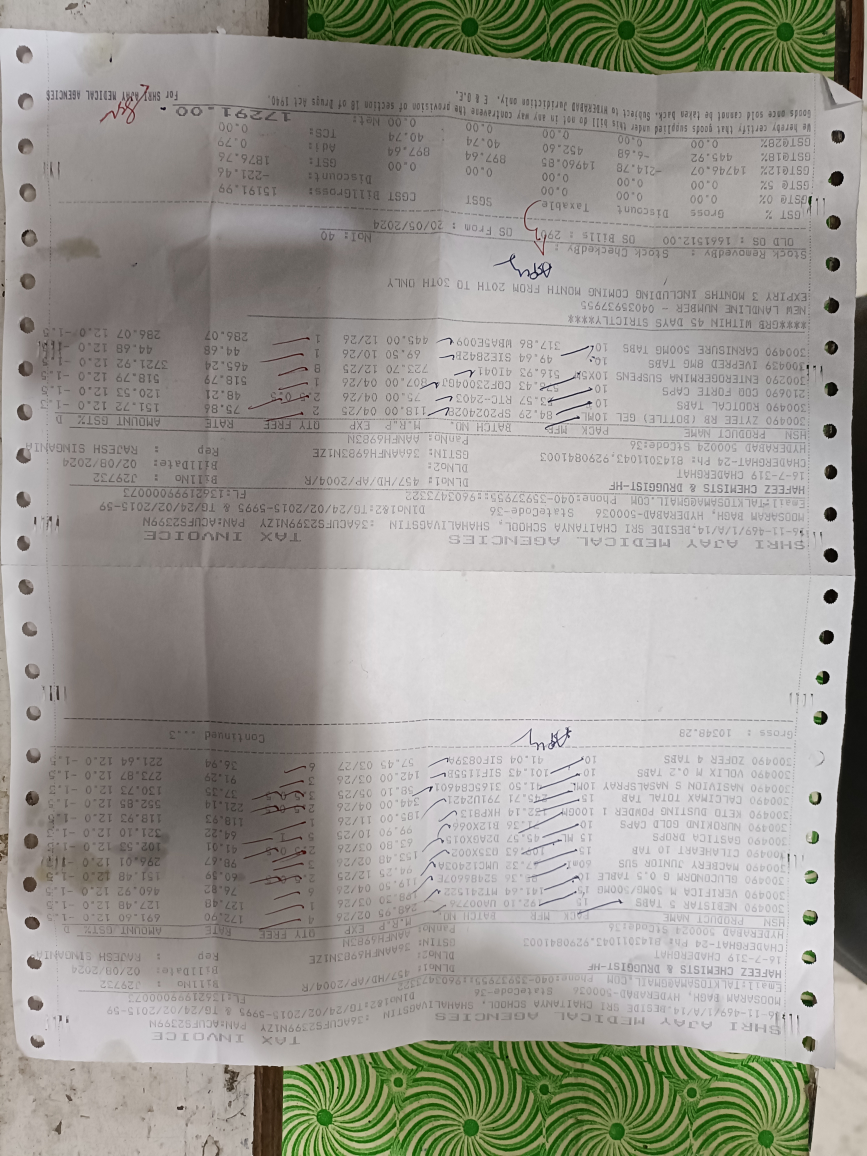 SHRI AJAY MEDICAL AGENCIES TAX INVOICE
16-11-469/1/A/14,BESIDE SRI CHAITANYA SCHOOL, SHAHLIVAGSTIN :36ACUFS2399N1ZY PAN:ACUFS2399N
MOOSARAM BAGH, HYDERABAD-500036 StateCode-36 DlNo1&2:TG/24/02/2015-5995 & TG/24/02/2015-59
FL:13621999000073
HAFEEZ CHEMISTS & DRUGGIST-HF DLNo1: 457/HD/AP/2004/R BillNo : J29732
16-7-319 CHADERGHAT DLNo2: BillDate: 02/08/2024
CHADERGHAT-24 Ph: 8143011043,9290841003 GSTIN: 36AANFH6983N1ZE Rep : RAJESH SINGANIA
HYDERABAD 500024 StCode:36 PanNo: AANFH6983N
HSN PRODUCT NAME PACK MFG BATCH NO. M.R.P EXP QTY FREE RATE AMOUNT GST% D
300490 NERISTAR 5 TABS 15 02/26 4 172.90 691.60 12.0
300490 VERIFICA M 50MG/500MG 15 1 127.48 127.48 12.0
300490 GLUCONORM G 0.5 TABLE 6 76.82 460.92 12.0
300490 MACBERY JUNIOR SUS 60ML 94.25 12/25 151.48 12.0
300490 CILAHEART 10 TAB 15 153.48 02/26 3 98.67 296.01 12.0
300490 GASTICA DROPS 15 ML 45.57 63.90 03/26 41.01 102.53 12.0
300490 NUROKIND GOLD CAPS 10 99.90 10/25 5 64.22 321.10 12.0 -1.3
300490 KETO DUSTING POWDER 1 100GM 122.14 HXP813 185.00 11/26 1 118.93 118.93 12.0 -1.5
300490 CALCIMAX TOTAL TAB 15 344.00 04/26 221.14 552.85 12.0 -1.5
300490 NASIVION S NASALSPRAY 10ML 41.50 3165CS4601 58.10 05/26 37.35 130.73 12.0 -1.5
300490 VOLIX M 0.2 TABS 10 101.43 SIF1155B 142.00 03/26 3 91.29 273.87 12.0 -1.5
300490 ZOFER 4 TABS 10 41.04 SIF0839A 57.45 03/27 6 36.94 221.64 12.0 -1.5
Gross : 10348.28 Continued ...3
SHRI AJAY MEDICAL AGENCIES TAX INVOICE
16-11-469/1/A/14,BESIDE SRI CHAITANYA SCHOOL, SHAHLIVAGSTIN :36ACUFS2399N1ZY PAN:ACUFS2399N
MOOSARAM BAGH, HYDERABAD-500036 StateCode-36 DlNo1&2:TG/24/02/2015-5995 & TG/24/02/2015-59
Phone:040-35937955::9603473322 FL:13621999000073
HAFEEZ CHEMISTS & DRUGGIST-HF DLNo1: 457/HD/AP/2004/R BillNo : J29732
16-7-319 CHADERGHAT DLNo2: BillDate: 02/08/2024
CHADERGHAT-24 Ph: 8143011043,9290841003 GSTIN: 36AANFH6983N1ZE Rep : RAJESH SINGANIA
HYDERABAD 500024 StCode:36 PanNo: AANFH6983N
HSN PRODUCT NAME PACK MFG BATCH NO. M.R.P EXP QTY FREE RATE AMOUNT GST% D
300490 ZYTEE RB (BOTTLE) GEL 10ML 84.29 SP2024028 118.00 04/25 2 75.86 151.72 12.0 -1.3
300490 ROZICAL TABS 10 53.57 RTC-2403 75.00 04/26 48.21 120.53 12.0 -1.5
210690 COD FORTE CAPS 10 COF223004DJ 807.00 04/26 1 518.79 518.79 12.0 -1.5
300290 ENTEROGERMINA SUSPENS 10X5M 516.93 41041 723.70 12/25 8 465.24 3721.92 12.0 -1.5
300439 IVEPRED 8MG TABS 10 49.64 SIE2842B 69.50 10/26 1 44.68 44.68 12.0
300490 CARNISURE 500MG TABS 10 317.86 WBA5E009 445.00 12/26 1 286.07 286.07 12.0 -1.5
****GRB WITHIN 45 DAYS STRICTLY****
NEW LANDLINE NUMBER - 04035937955
EXPIRY 3 MONTHS INCLUDING COMING MONTH FROM 20TH TO 30TH ONLY
Stock RemovedBy : Stock CheckedBy :
OLD OS : 1661512.00 OS Bills : 290 OS From : 20/05/2024 NoI: 40
GST % Gross Discount Taxable SGST CGST BillGross: 15191.99
GST@ 0% 0.00 0.00 Discount: -221.46
GST@ 5% 0.00 0.00 GST: 1876.76
GST@12% 14746.07 -214.78 14960.85 897.64 897.64 Adj: 0.79
GST@18% 445.92 -6.68 452.60 40.74 40.74 TCS: 0.00
GST@28% 0.00 0.00 0.00 0.00 0.00 Net: 17291.00
We hereby certify that goods supplied under this bill do not in any way contravene the provision of section 18 of Drugs Act 1940.
Goods once sold cannot be taken back. Subject to HYDERABAD Jurisdiction only. E & O.E. For SHRI AJAY MEDICAL AGENCIES